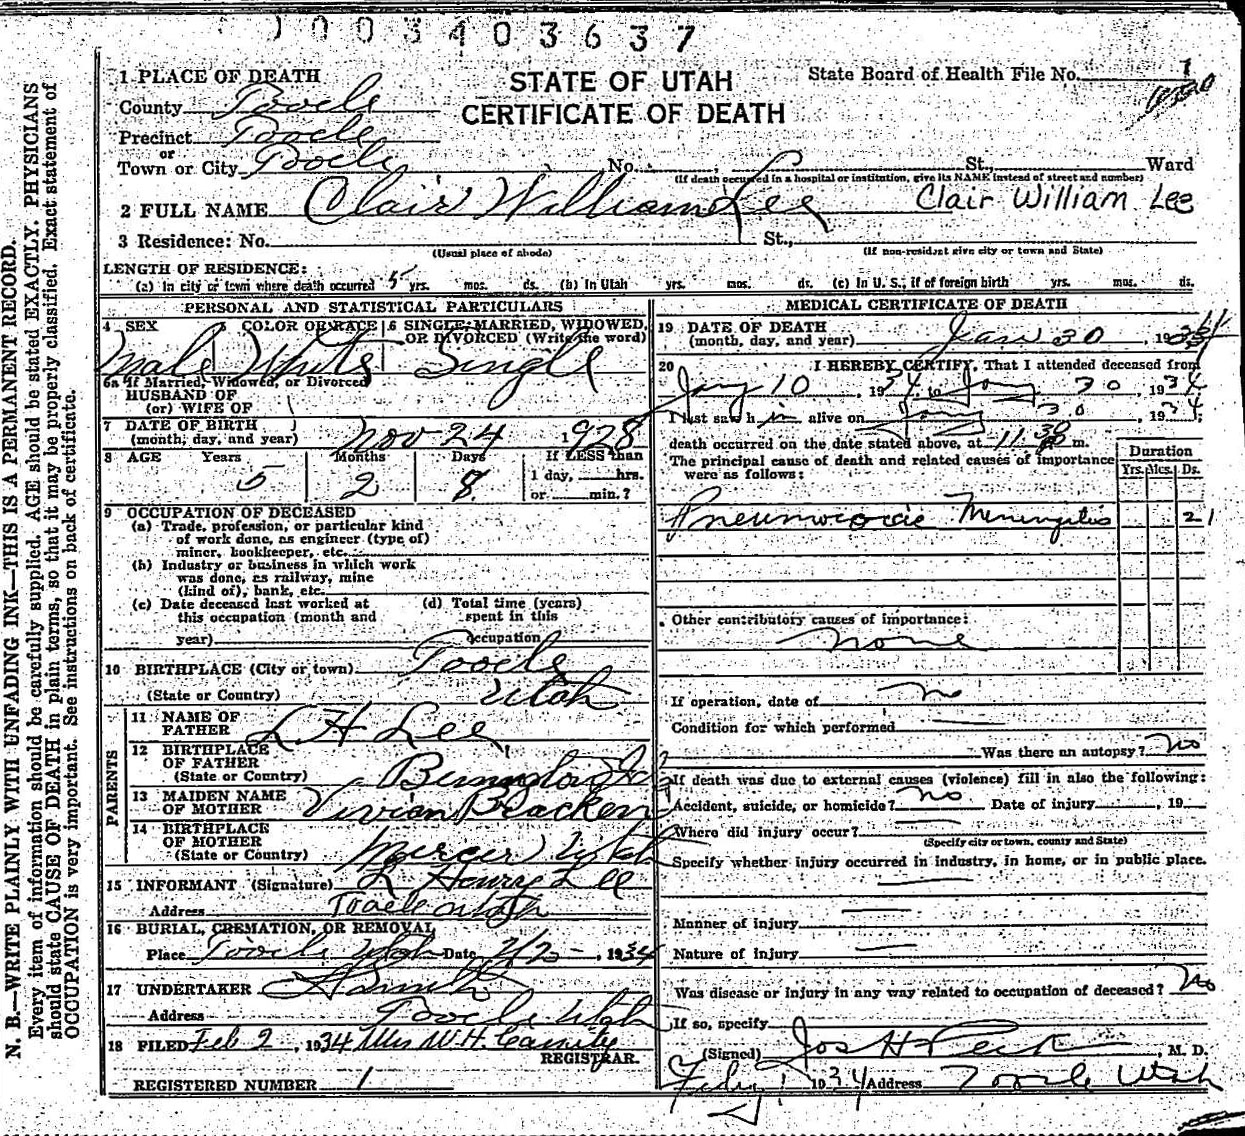 1003403637
STATE OF UTAH
CERTIFICATE OF DEATH
State Board of Health File No. 1
1 PLACE OF DEATH
County Tooele
Precinct Tooele
or
Town or City Tooele No. St., Ward
(If death occured in a hospital or institution, give its NAME instead of street and number)
2 FULL NAME Clair William Lee Clair William Lee
3 Residence: No. St.,
(Usual place of abode) (If non-resident give city or town and State)
LENGTH OF RESIDENCE:
(a) In city or town where death occurred 5 yrs. mos. ds. (b) In Utah yrs. mos. ds. (c) In U. S., if of foreign birth yrs. mos. ds.
PERSONAL AND STATISTICAL PARTICULARS
4 SEX 5 COLOR OR RACE 6 SINGLE, MARRIED, WIDOWED,
OR DIVORCED (Write the word)
Male White Single
6a If Married, Widowed, or Divorced
HUSBAND OF
(or) WIFE OF
7 DATE OF BIRTH
(month, day, and year) Nov 24 1928
8 AGE Years Months Days If LESS than
5 2 8 1 day, hrs.
or min.?
9 OCCUPATION OF DECEASED
(a) Trade, profession, or particular kind
of work done, as engineer (type of)
miner, bookkeeper, etc.
(b) Industry or business in which work
was done, as railway, mine
(kind of), bank, etc.
(c) Date deceased last worked at (d) Total time (years)
this occupation (month and spent in this
year) occupation
10 BIRTHPLACE (City or town) Tooele
(State or Country) Utah
PARENTS
11 NAME OF
FATHER L H Lee
12 BIRTHPLACE
OF FATHER
(State or Country)
13 MAIDEN NAME
OF MOTHER Vivian Bracken
14 BIRTHPLACE
OF MOTHER
(State or Country) Mercur Utah
15 INFORMANT (Signature) L Henry Lee
Address Tooele Utah
16 BURIAL, CREMATION, OR REMOVAL
Place Tooele Utah Date 2/2 - , 1934
17 UNDERTAKER
Address Tooele Utah
18 FILED Feb 2, 1934 Mrs W. H. Cassity
REGISTRAR.
REGISTERED NUMBER 1
MEDICAL CERTIFICATE OF DEATH
19 DATE OF DEATH
(month, day, and year) Jan 30, 1934
20 I HEREBY CERTIFY, That I attended deceased from
Jany 10, 1934, to Jany 30 1934
I last saw h im alive on Jany 30, 1934;
death occurred on the date stated above, at 11:30 p m.
The principal cause of death and related causes of importance
were as follows:
Duration
Yrs. Mcs. Ds.
Pneumococcic Meningitis 21
Other contributory causes of importance:
none
If operation, date of no
Condition for which performed
Was there an autopsy? No
If death was due to external causes (violence) fill in also the following:
Accident, suicide, or homicide? no Date of injury , 19
Where did injury occur?
(Specify city or town, county and State)
Specify whether injury occurred in industry, in home, or in public place.
Manner of injury
Nature of injury
Was disease or injury in any way related to occupation of deceased? No
If so, specify
(Signed) Jos H Peck, M. D.
Feby 1 1934 Address Tooele Utah
N. B.—WRITE PLAINLY WITH UNFADING INK—THIS IS A PERMANENT RECORD.
Every item of information should be carefully supplied. AGE should be stated EXACTLY. PHYSICIANS
should state CAUSE OF DEATH in plain terms, so that it may be properly classified. Exact statement of
OCCUPATION is very important. See instructions on back of certificate.